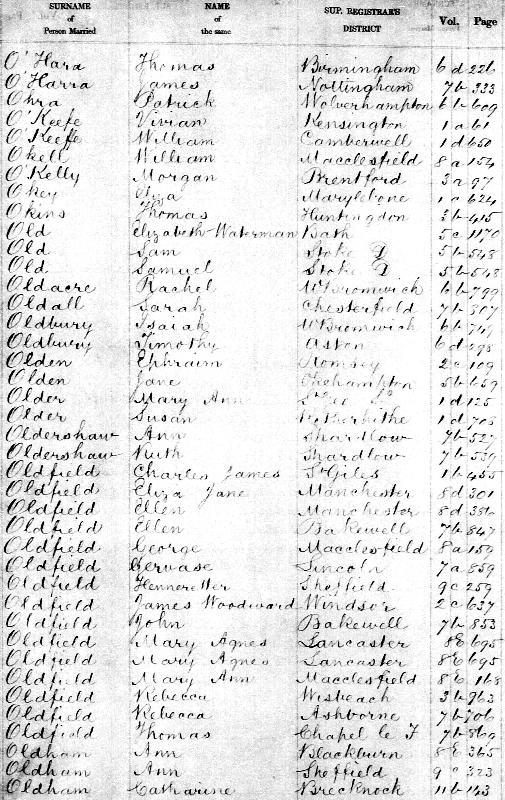 SURNAME of Person Married NAME of the same SUP. REGISTRAR'S DISTRICT Vol. Page
O'Hara Thomas Birmingham 6 d 226
O'Harra James Nottingham 7 b 333
Ohra Patrick Wolverhampton 6 b 609
O'Keefe Vivian Kensington 1 a 61
O'Keeffe William Camberwell 1 d 650
Okell William Macclesfield 8 a 154
O'Kelly Morgan Brentford 3 a 97
Okey Eliza Marylebone 1 a 624
Okins Thomas Huntingdon 3 b 415
Old Elizabeth Waterman Bath 5 c 1170
Old Sam Stoke D 5 b 548
Old Samuel Stoke D 5 b 548
Oldacre Rachel W Bromwich 6 b 799
Oldall Sarah Chesterfield 7 b 307
Oldbury Isaiah W Bromwich 6 b
Oldbury Timothy Aston 6 d 298
Olden Ephraim Romsey 2 c 109
Olden Jane Okehampton 5 b 659
Older Mary Ann 1 d 125
Older Susan Rotherhithe 1 d 708
Oldershaw Ann Shardlow 7 b 527
Oldershaw Ruth Shardlow 7 b 539
Oldfield Charles James St Giles 1 b 455
Oldfield Eliza Jane Manchester 8 d 301
Oldfield Ellen Manchester 8 d 386
Oldfield Ellen Bakewell 7 b 847
Oldfield George Macclesfield 8 a 159
Oldfield Gervase Lincoln 7 a 859
Oldfield Henneretter Sheffield 9 c 259
Oldfield James Woodward Windsor 2 c 637
Oldfield John Bakewell 7 b 853
Oldfield Mary Agnes Lancaster 8 E 695
Oldfield Mary Agnes Lancaster 8 E 695
Oldfield Mary Ann Macclesfield 8 E 168
Oldfield Rebecca Wisbeach 3 b 963
Oldfield Rebecca Ashborne 7 b 706
Oldfield Thomas Chapel le F 7 b 860
Oldham Ann Blackburn 8 E 365
Oldham Ann Sheffield 9 c 323
Oldham Catharine Brecknock 11 b 143